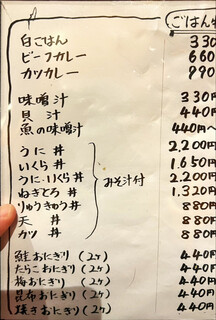 ごはん
白ごはん 330
ビーフカレー 660
カツカレー 890
味噌汁 330円
貝汁 440円
魚の味噌汁 440円〜
うに丼 2,200円
いくら丼 1,650円
うに・いくら丼 2,200円
ねぎとろ丼 1,320円
りゅうきゅう丼 880円
天丼 880円
カツ丼 880円
みそ汁付
鮭おにぎり(2ケ) 440円
たらこおにぎり(2ケ) 440円
梅おにぎり(2ケ) 440円
昆布おにぎり(2ケ) 440円
焼きおにぎり(2ケ) 440円